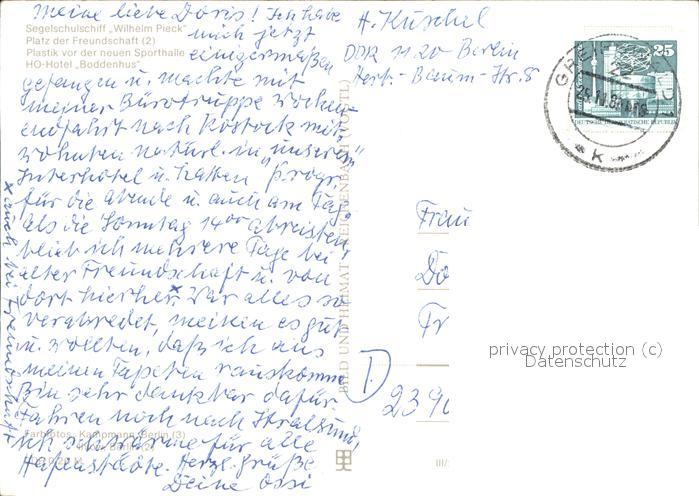 Meine liebe Doris! Ich habe
mich jetzt
einigermaßen
gefangen u. machte mit
meiner Bürotruppe Wochen-
endfahrt nach Rostock mit,
wohnten natürl. in "unserem"
Interhotel u. hatten Progr.
für die Abende u. auch am Tag.
Als die Sonntag 14⁰⁰ abreisten,
blieb ich mehrere Tage bei
alter Freundschaft u. von
dort hierher.x War alles so
verabredet, meinen es gut
u. wollten, daß ich aus
meinen Tapeten rauskomme
Bin sehr dankbar dafür.
Fahren noch nach Stralsund,
ich schwärme für alle
Hafenstädte. Herzl. Grüße
Deine Ossi
x auch bei Freundschaft
Segelschulschiff „Wilhelm Pieck"
Platz der Freundschaft (2)
Plastik vor der neuen Sporthalle
HO-Hotel „Boddenhus"
Farbfotos: Kampmann, Berlin (3)
BILD UND HEIMAT REICHENBACH (VOGTL)
III/
H. Kuschel
DDR 1120 Berlin
Herb.-Baum-Str. 8
25
DEUTSCHE DEMOKRATISCHE REPUBLIK
Frau
Do
Fr
D
2390
privacy protection (c)
Datenschutz